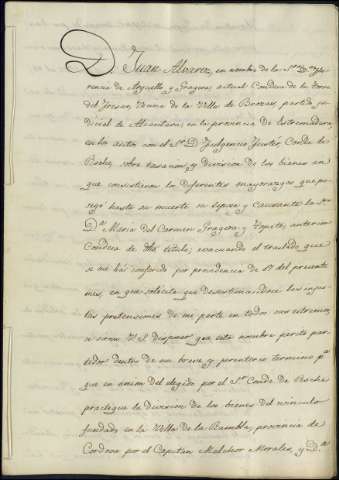 D. Juan Alvarez, en nombre de la S.ra D.a Flo
rencia de Arguello y Aragon, actual Condesa de la Torre
del Fresno, Vecina de la Villa de Brozas, partido ju
dicial de Alcantara, en la provincia de Estremadura,
en los autos con el S.or D. Fulgencio Fuster, Conde de
Roche, sobre tasacion, y division de los bienes en
que consistieron los diferentes mayorazgos que po
seyó hasta su muerte su esposa y causante la S.ra
D.a Maria del Carmen Aragon y anterior
Condesa de dho titulo; evacuando el traslado que
se me há conferido por providencia de 17 del presente
mes, en que solicita que desestimandose las injus
tas pretensiones de mi parte en todos sus estremos,
se sirva V.S. disponer que esta nombre perito par
tidor dentro de un breve y perentorio termino p.a
que en union del elegido por el S.or Conde de Roche
practique la division de los bienes del vinculo
fundado en la Villa de la Rambla, provincia de
Cordova por el Capitan Melchor Morales, y D.a